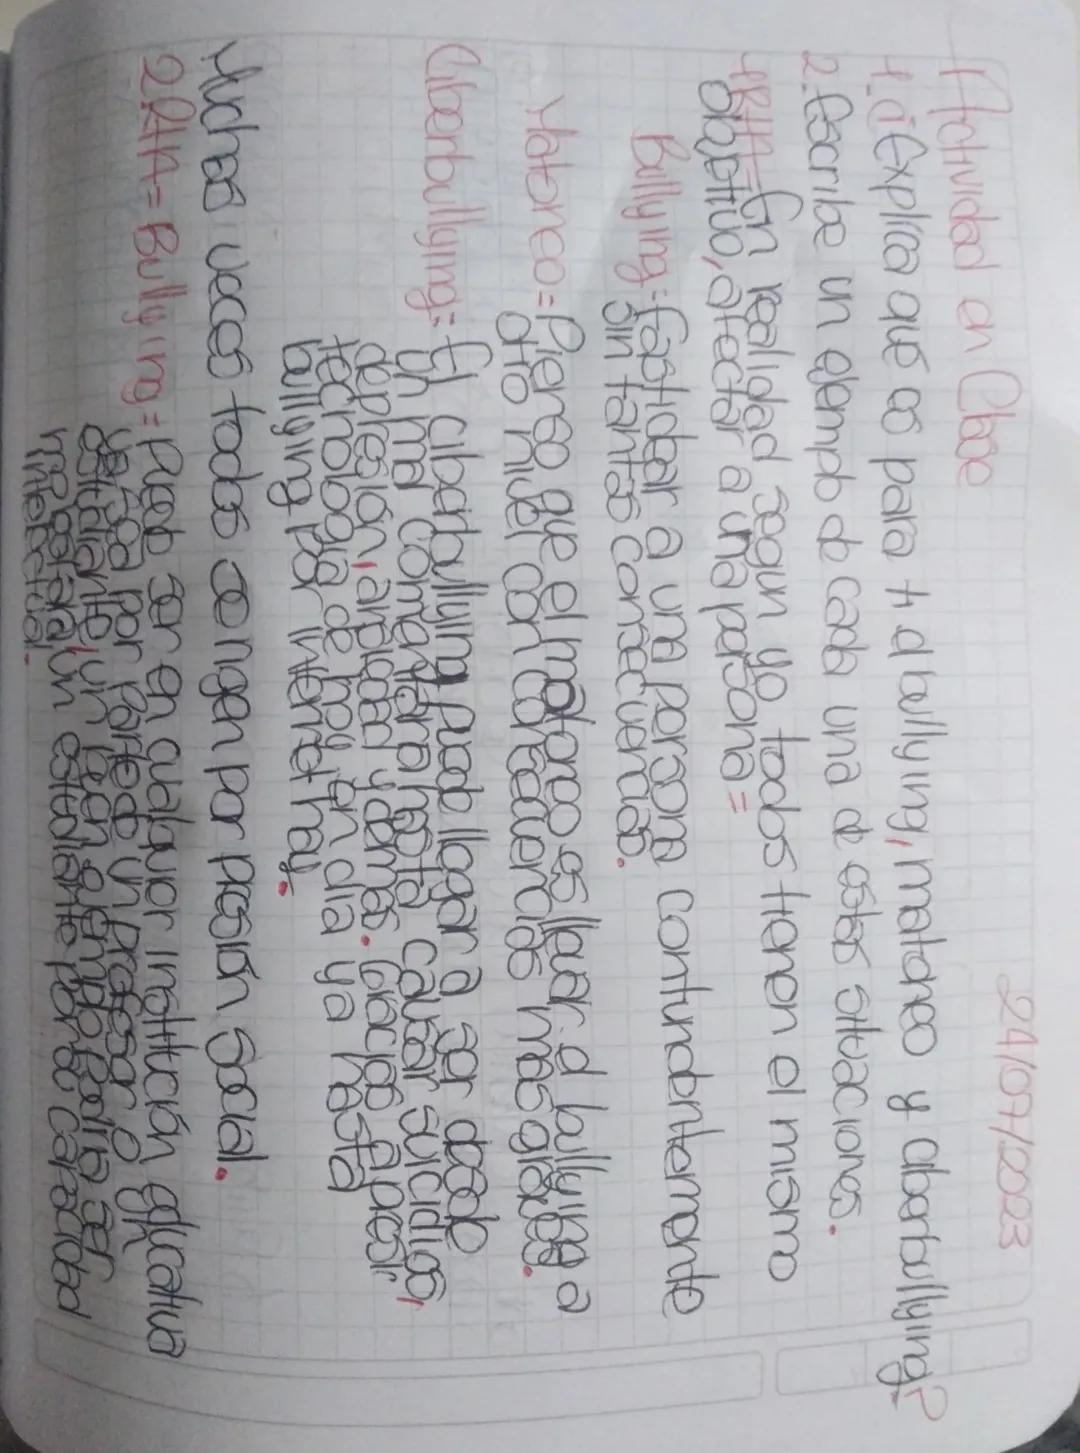 24/07/2023
Actividad en Clase
1. ¿Explica que es para ti el bullying, matoneo y ciberbullying?
2. Escribe un ejemplo de cada una de estas situaciones.
1RHA= En realidad segun yo todos tienen el mismo
objetivo, afectar a una persona=
Bullying: fastidear a una persona contundentemente
sin tantas consecuencias.
Matoneo= Pienso que el matoneo es llevar el bullying a
otro nivel con consecuencias mas graves.
Ciberbullying: El ciberbullying puede llegar a ser desde
un mal comentario hasta causar suicidios,
depresión, ansiedad y demas. Gracias a
tecnologia de hoy en dia ya hasta
bullying por internet hay.
Muchas veces todas se rigen por presión social.
2.RHA= Bullying= Puede ser en cualquier institución educativa
ya sea por parte de un profesor o
estudiante, un buen ejemplo podria ser
molestar a un estudiante por su capacidad
intelectual.